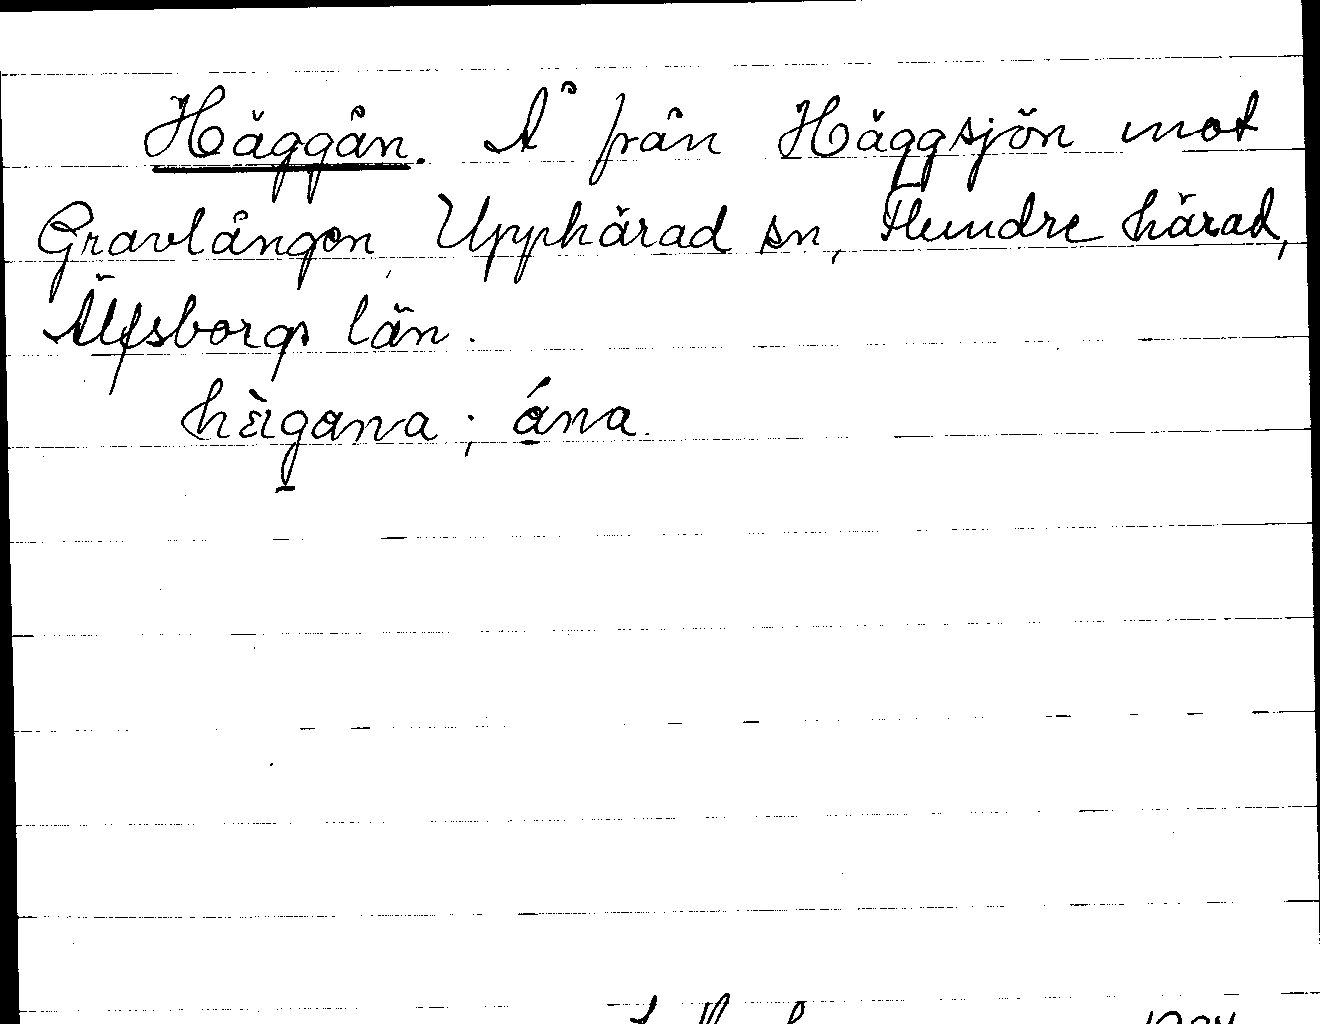 Häggån. Å från Häggsjön mot
Gravlången, Upphärad sn, Flundre härad,
Älfsborgs län.
hèɪgana; ána.